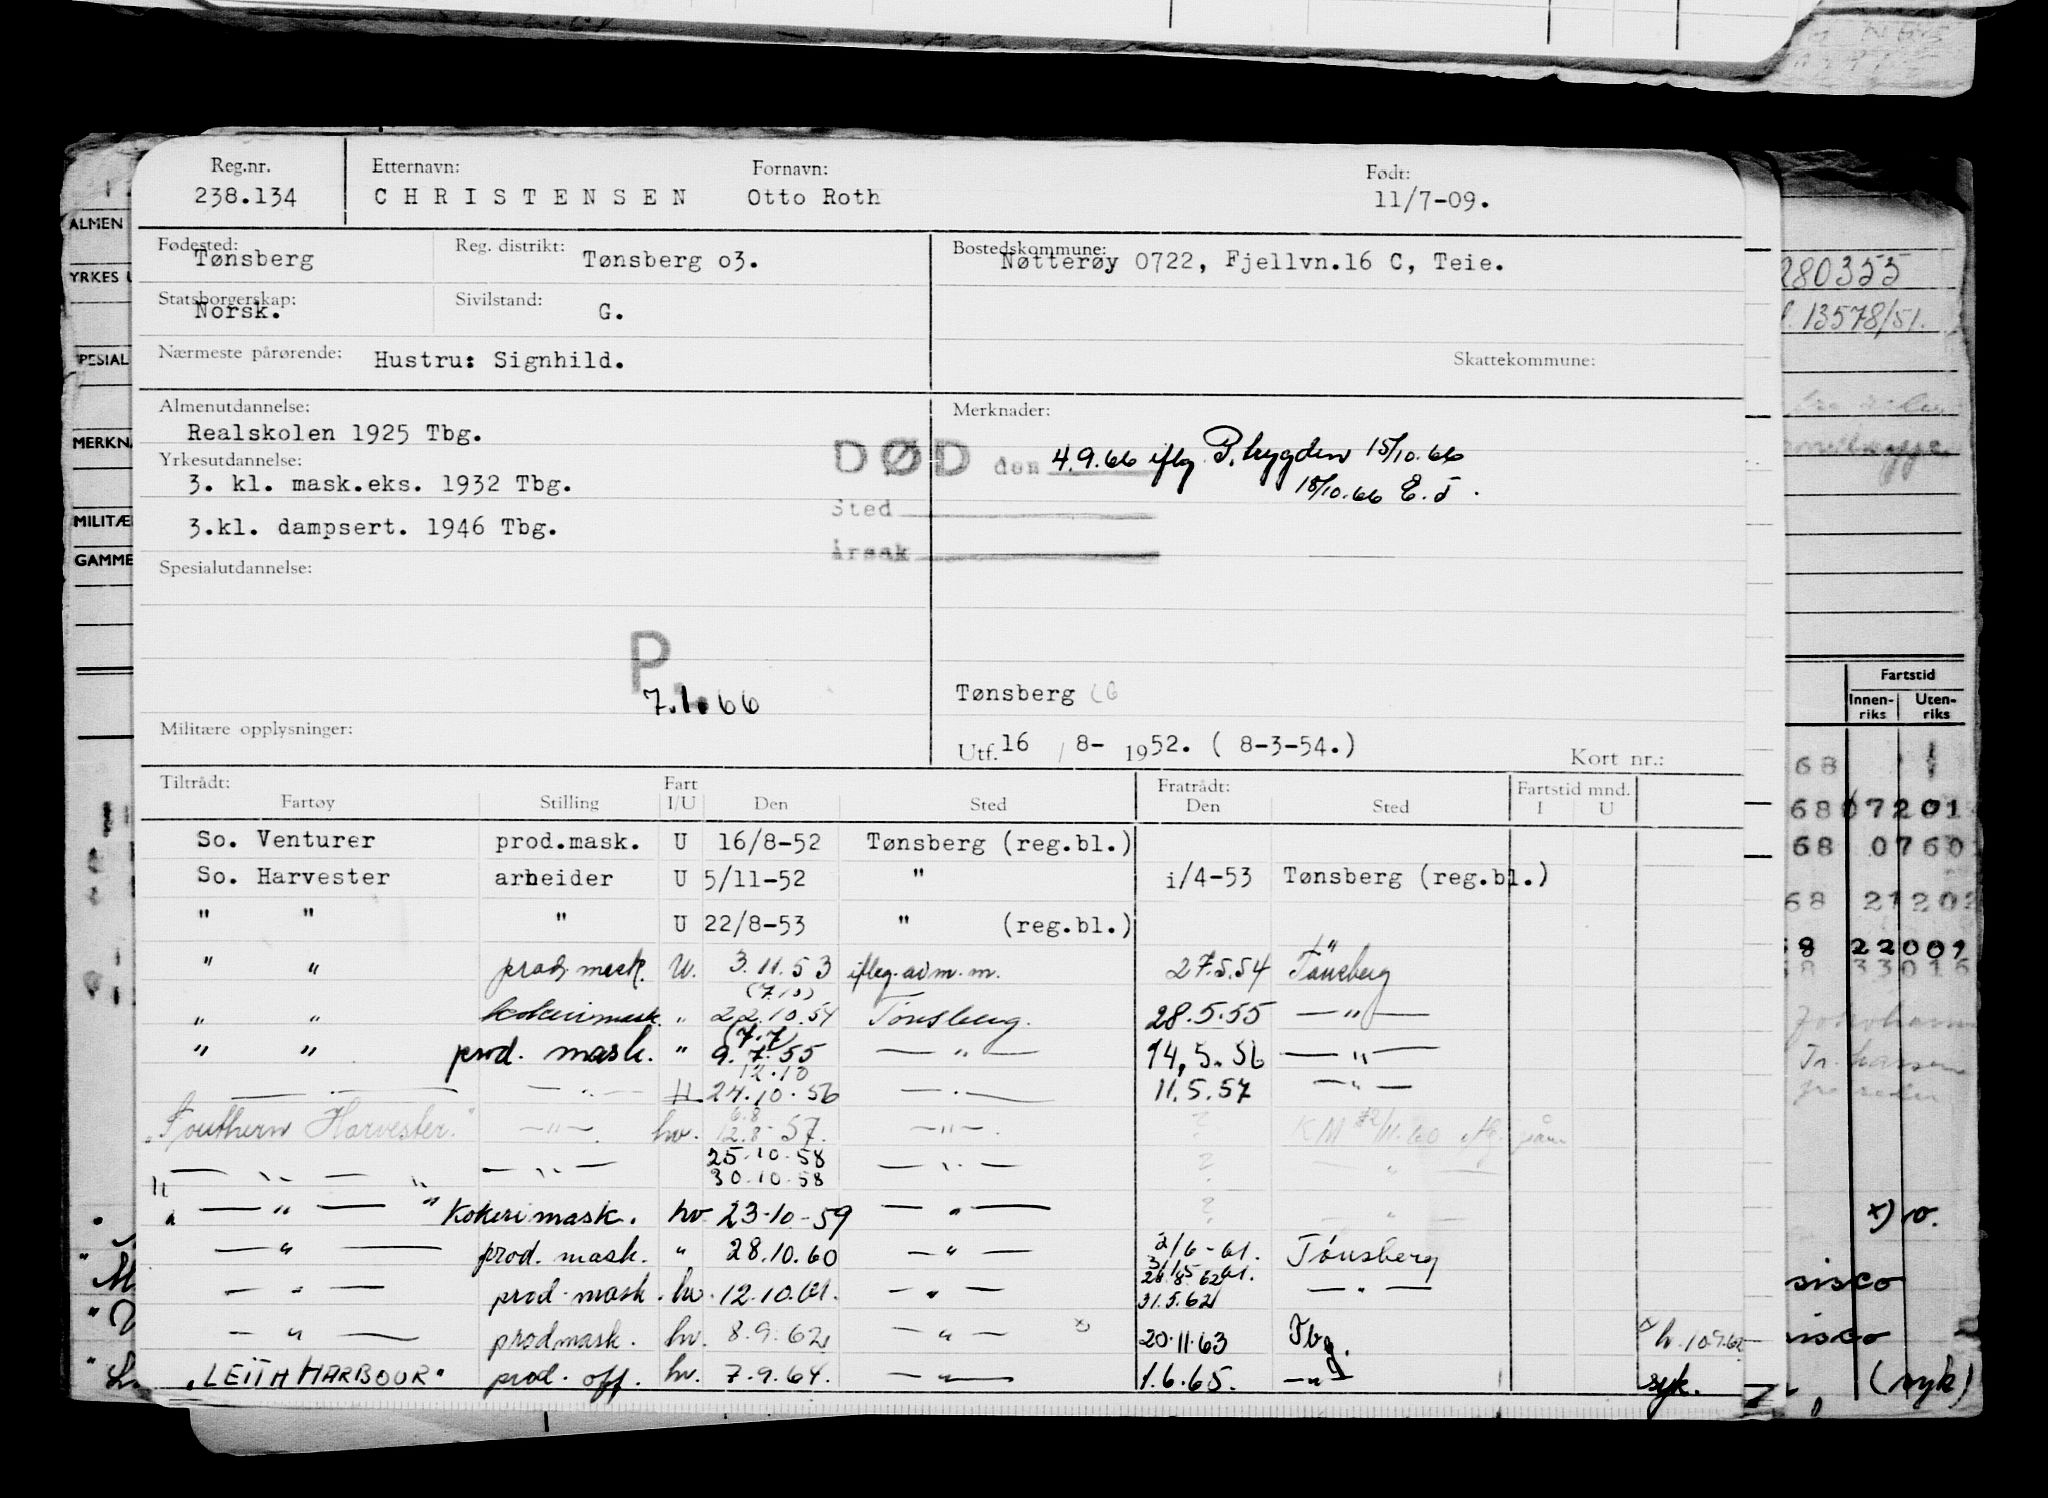 Reg.nr. Etternavn: Fornavn: Født:
238.134 CHRISTENSEN Otto Roth 11/7-09.
Fødested: Reg. distrikt: Bostedskommune:
Tønsberg Tønsberg o3. Nøtterøy 0722, Fjellvn.16 C, Teie.
Statsborgerskap: Sivilstand:
Norsk. G.
Nærmeste pårørende: Hustru: Signhild. Skattekommune:
Almenutdannelse: Merknader:
Realskolen 1925 Tbg.
DØD den 4.9.66 iflg P.trygden 15/10.66
Yrkesutdannelse:
3. kl. mask.eks. 1932 Tbg. 18/10.66 E.J.
Sted
3.kl. dampsert. 1946 Tbg.
årsak
Spesialutdannelse:
P.
7.1.66
Tønsberg
Militære opplysninger:
Utf. 16 / 8- 1952. ( 8-3-54.) Kort nr.:
Tiltrådt: Fart Fratrådt: Fartstid mnd.
Fartøy Stilling I/U Den Sted Den Sted I U
So. Venturer prod.mask. U 16/8-52 Tønsberg (reg.bl.)
So. Harvester arbeider U 5/11-52 " i/4-53 Tønsberg (reg.bl.)
" " " U 22/8-53 " (reg.bl.)
" " prod. mask. U. 3.11.53 27.5.54 Tønsberg
(7.10)
" " kokerimask. " 22.10.54 Tønsberg. 28.5.55 — " —
(7.7)
" " prod. mask. " 9.7.55 — " — 14.5.56 — " —
12.10
— " — — " — U 24.10.56 — " — 11.5.57 — " —
6.8
"Southern Harvester" — " — hv. 12.8-57. — " — ?
25.10.58
— " — " — " — 30.10.58 — " — ? — " —
" — " — " Kokerimask. hv 23-10-59 — " — ? — " —
— " — prod. mask. " 28.10.60 — " — 2/6-61. Tønsberg
— " — prod. mask. hv. 12.10.61. — " — 31.5.62 — " —
— " — prodmask. hv. 8.9.62 — " — x) 20.11.63 Tbg. x h. 10.9.62
"LEITH HARBOUR" prod. off. hv. 7.9.64. — " — 1.6.65. — " — syk.
ALMEN
YRKES U
SPESIAL
MERKNA
MILITÆ
GAMME
280355
13578/51.
Fartstid
Innen-riks Uten-riks
68
68 07201
68 0760
68 21202
8 22009
33016
x)
sisco
isco
(syk)